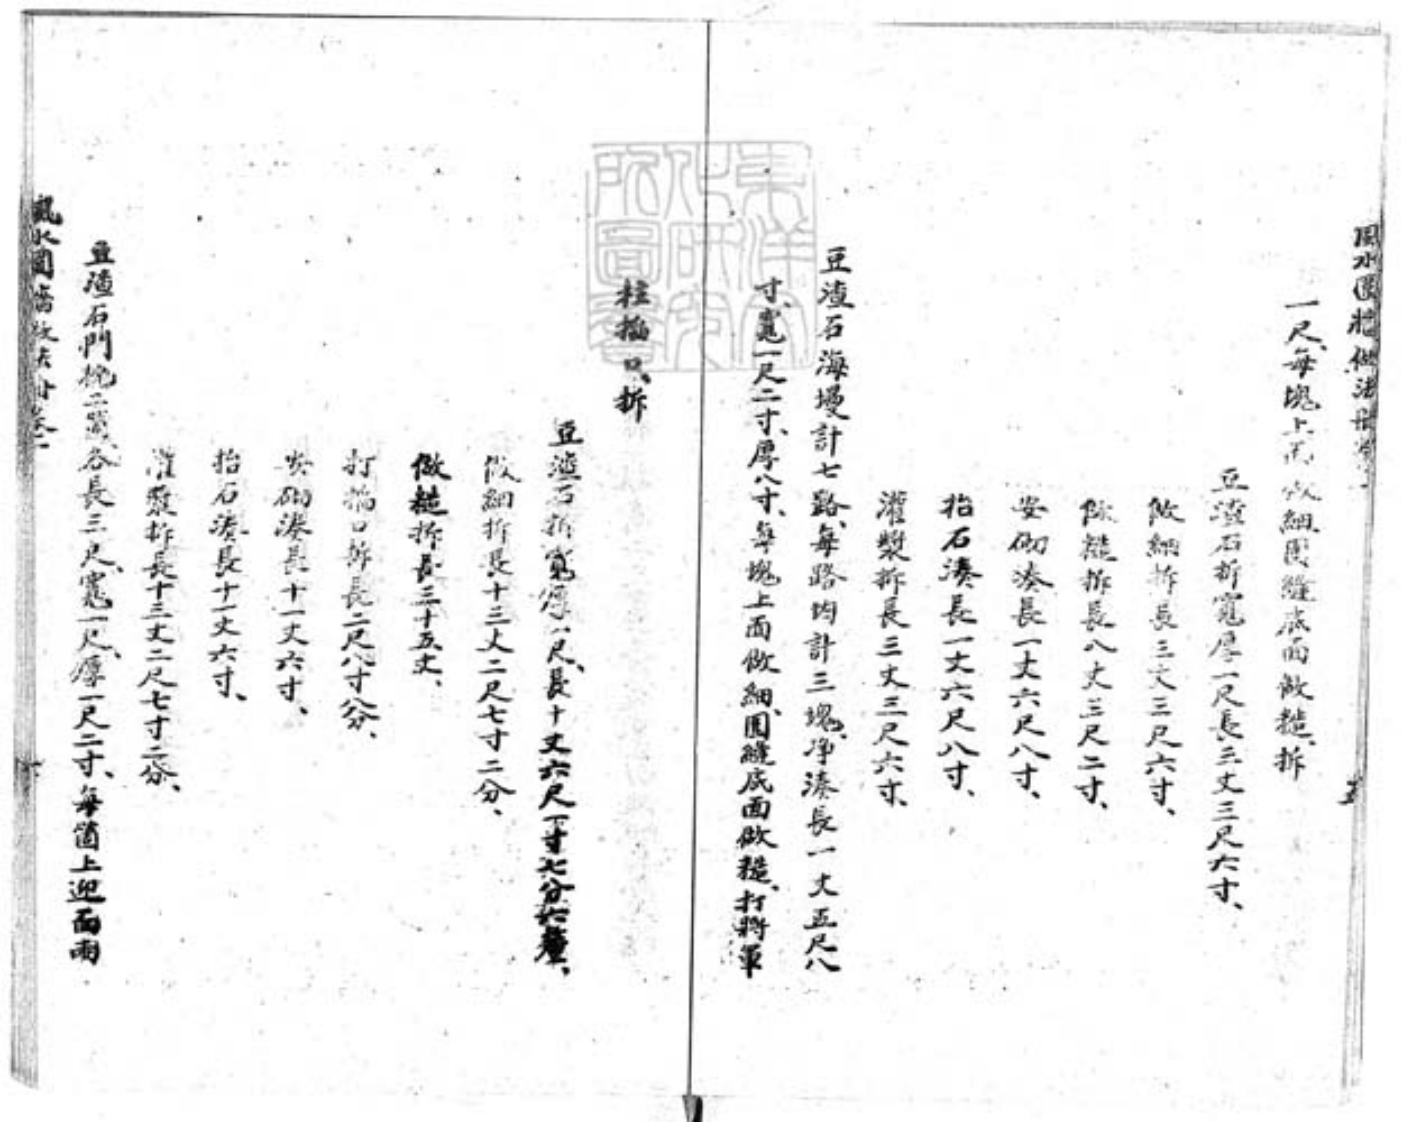 風水圍墻做法冊卷一
五
一尺、每塊上面做細、圍縫底面做糙、拆
豆渣石折寬厚一尺長三丈三尺六寸、
做細拆長三丈三尺六寸、
做糙拆長八丈三尺二寸、
安砌湊長一丈六尺八寸、
抬石湊長一丈六尺八寸、
灌漿拆長三丈三尺六寸、
豆渣石海墁計七路、每路均計三塊、凈湊長一丈五尺八
寸、寬一尺二寸、厚八寸、每塊上面做細、圍縫底面做糙、打將軍
柱搯口、拆
豆渣石拆寬厚一尺、長十丈六尺一寸七分六釐、
做細拆長十三丈二尺七寸二分、
做糙拆長三十五丈、
打搯口拆長二尺八寸八分、
安砌湊長十一丈六寸、
抬石湊長十一丈六寸、
灌漿拆長十三丈二尺七寸二分、
豆渣石門枕二箇、各長三尺、寬一尺、厚一尺二寸、每箇上迎面兩
風水圍墻做法冊卷一
東洋文化研究所圖書